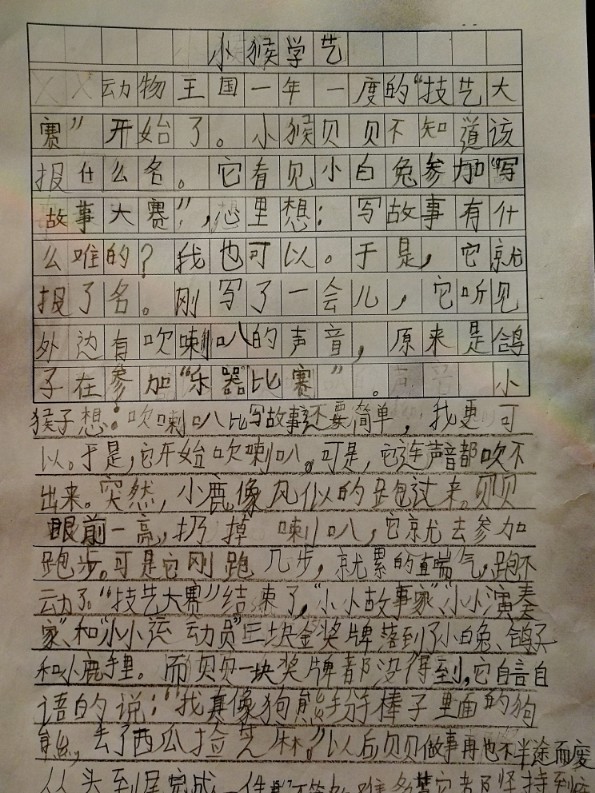 小猴学艺
动物王国一年一度的“技艺大
赛”开始了。小猴贝贝不知道该
报什么名。它看见小白兔参加“写
故事大赛”,心里想：写故事有什
么难的？我也可以。于是，它就
报了名。刚写了一会儿，它听见
外边有吹喇叭的声音，原来是鸽
子在参加“乐器比赛”。小
猴子想：吹喇叭比写故事还要简单，我更可
以。于是，它开始吹喇叭。可是，它连声音都吹不
出来。突然，小鹿像风似的跑过来。贝贝
眼前一亮，扔掉喇叭，它就去参加
跑步。可是它刚跑几步，就累的直喘气，跑不
动了。“技艺大赛”结束了，“小小故事家”、“小小演奏
家”、和“小小运动员”三块金奖牌落到了小白兔、鸽子
和小鹿手里。而贝贝一块奖牌都没得到，它自言自
语的说：“我真像狗熊掰棒子里面的狗
熊，丢了西瓜捡芝麻。”以后贝贝做事再也不半途而废
从头到尾完成一件